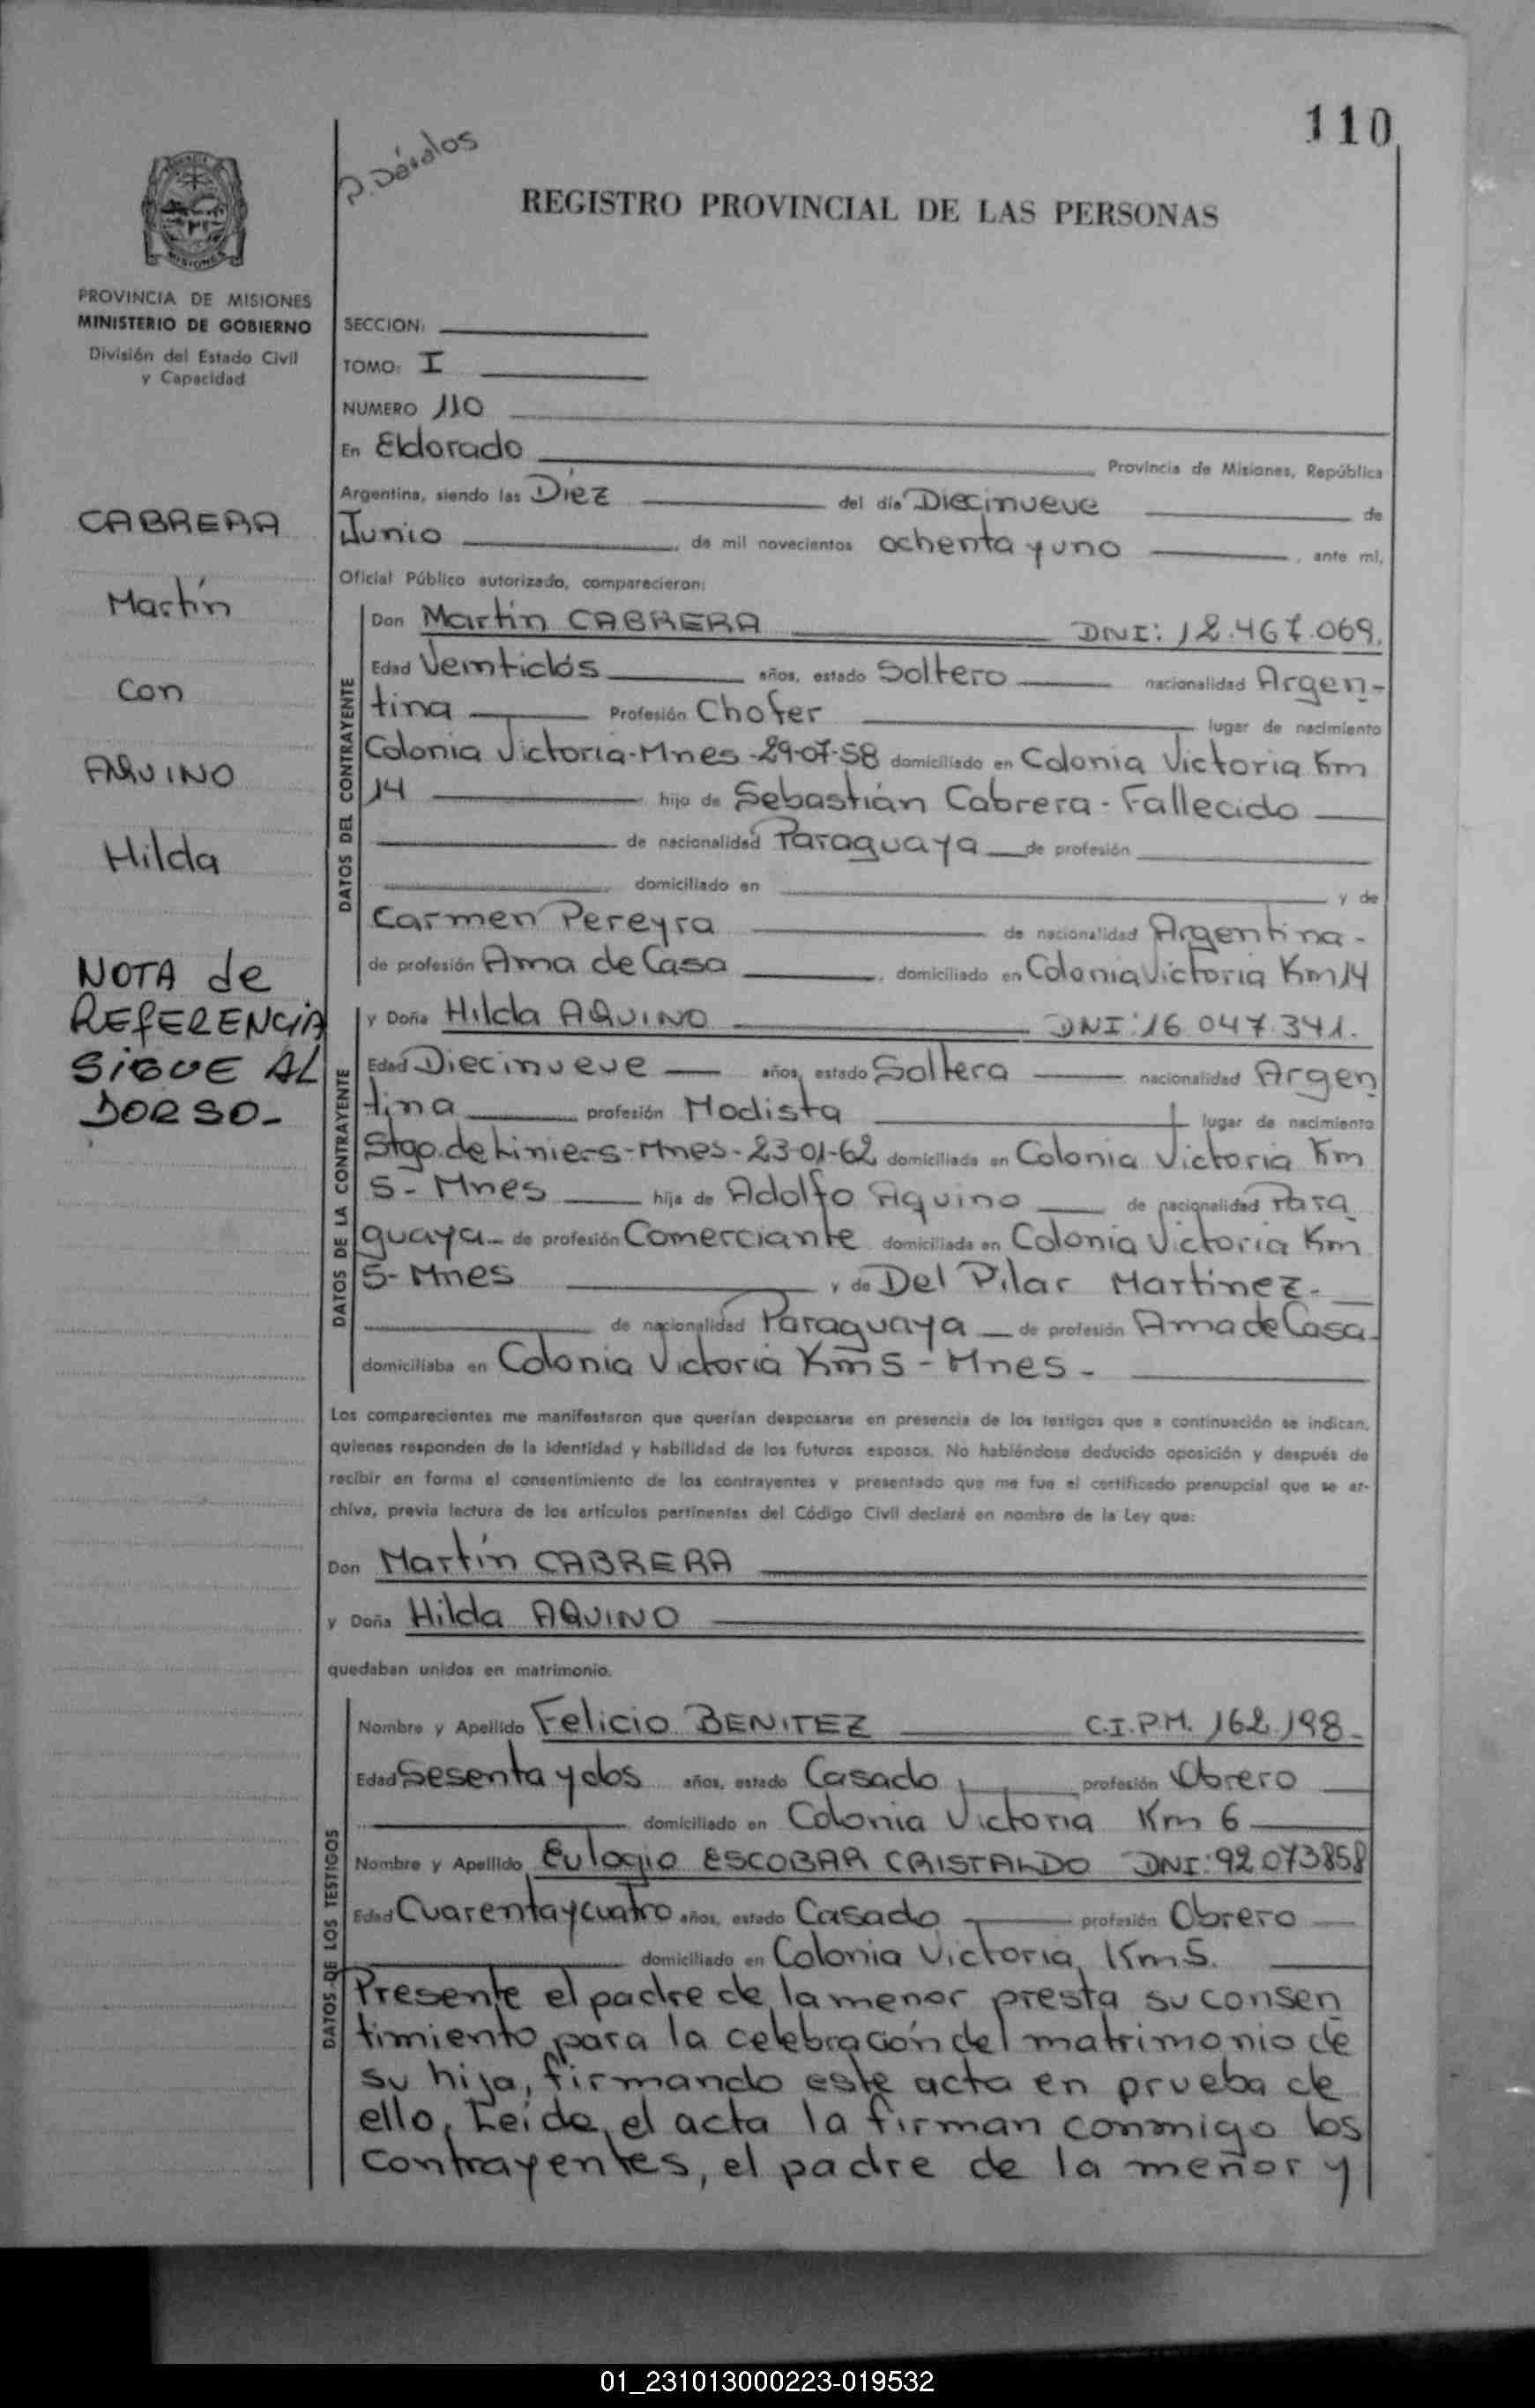 110
P. Dávalos
REGISTRO PROVINCIAL DE LAS PERSONAS
MISIONES
PROVINCIA DE MISIONES
MINISTERIO DE GOBIERNO
División del Estado Civil
y Capacidad
SECCION:
TOMO: I
NUMERO 110
En Eldorado Provincia de Misiones, República
Argentina, siendo las Diez del día Diecinueve de
Junio de mil novecientos ochenta y uno, ante mí,
Oficial Público autorizado, comparecieron:
CABRERA
Martín
con
AQUINO
Hilda
NOTA de
REFERENCIA
SIGUE AL
DORSO-
DATOS DEL CONTRAYENTE
Don Martín CABRERA DNI: 12.467.069.
Edad Veintidós años, estado Soltero nacionalidad Argen-
tina Profesión Chofer lugar de nacimiento
Colonia Victoria-Mnes-29-07-58 domiciliado en Colonia Victoria Km
14 hijo de Sebastián Cabrera - Fallecido
de nacionalidad Paraguaya de profesión
domiciliado en y de
Carmen Pereyra de nacionalidad Argentina-
de profesión Ama de Casa, domiciliado en Colonia Victoria Km 14
DATOS DE LA CONTRAYENTE
y Doña Hilda AQUINO DNI: 16.047.341.
Edad Diecinueve años, estado Soltera nacionalidad Argen
tina profesión Modista lugar de nacimiento
Stgo. de Liniers-Mnes-23-01-62 domiciliada en Colonia Victoria Km
5- Mnes hija de Adolfo Aquino de nacionalidad Para
guaya- de profesión Comerciante domiciliada en Colonia Victoria Km
5- Mnes y de Del Pilar Martinez-
de nacionalidad Paraguaya de profesión Ama de Casa-
domiciliaba en Colonia Victoria Km 5 - Mnes-
Los comparecientes me manifestaron que querían desposarse en presencia de los testigos que a continuación se indican,
quienes responden de la identidad y habilidad de los futuros esposos. No habiéndose deducido oposición y después de
recibir en forma el consentimiento de los contrayentes y presentado que me fue el certificado prenupcial que se ar-
chiva, previa lectura de los artículos pertinentes del Código Civil declaré en nombre de la Ley que:
Don Martín CABRERA
y Doña Hilda AQUINO
quedaban unidos en matrimonio.
DATOS DE LOS TESTIGOS
Nombre y Apellido Felicio BENITEZ C.I.P.M. 162.198-
Edad Sesenta y dos años, estado Casado, profesión Obrero
domiciliado en Colonia Victoria Km 6
Nombre y Apellido Eulogio ESCOBAR CRISTALDO DNI: 92.073858
Edad Cuarenta y cuatro años, estado Casado profesión Obrero
domiciliado en Colonia Victoria, Km 5.
Presente el padre de la menor presta su consen
timiento para la celebración del matrimonio de
su hija, firmando este acta en prueba de
ello. Leída el acta la firman conmigo los
contrayentes, el padre de la menor y
01_231013000223-019532